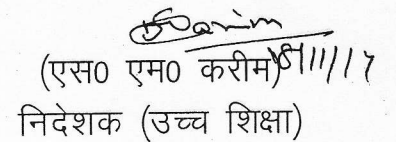 (एस0 एम0 करीम) 8/11/17
निदेशक (उच्च शिक्षा)